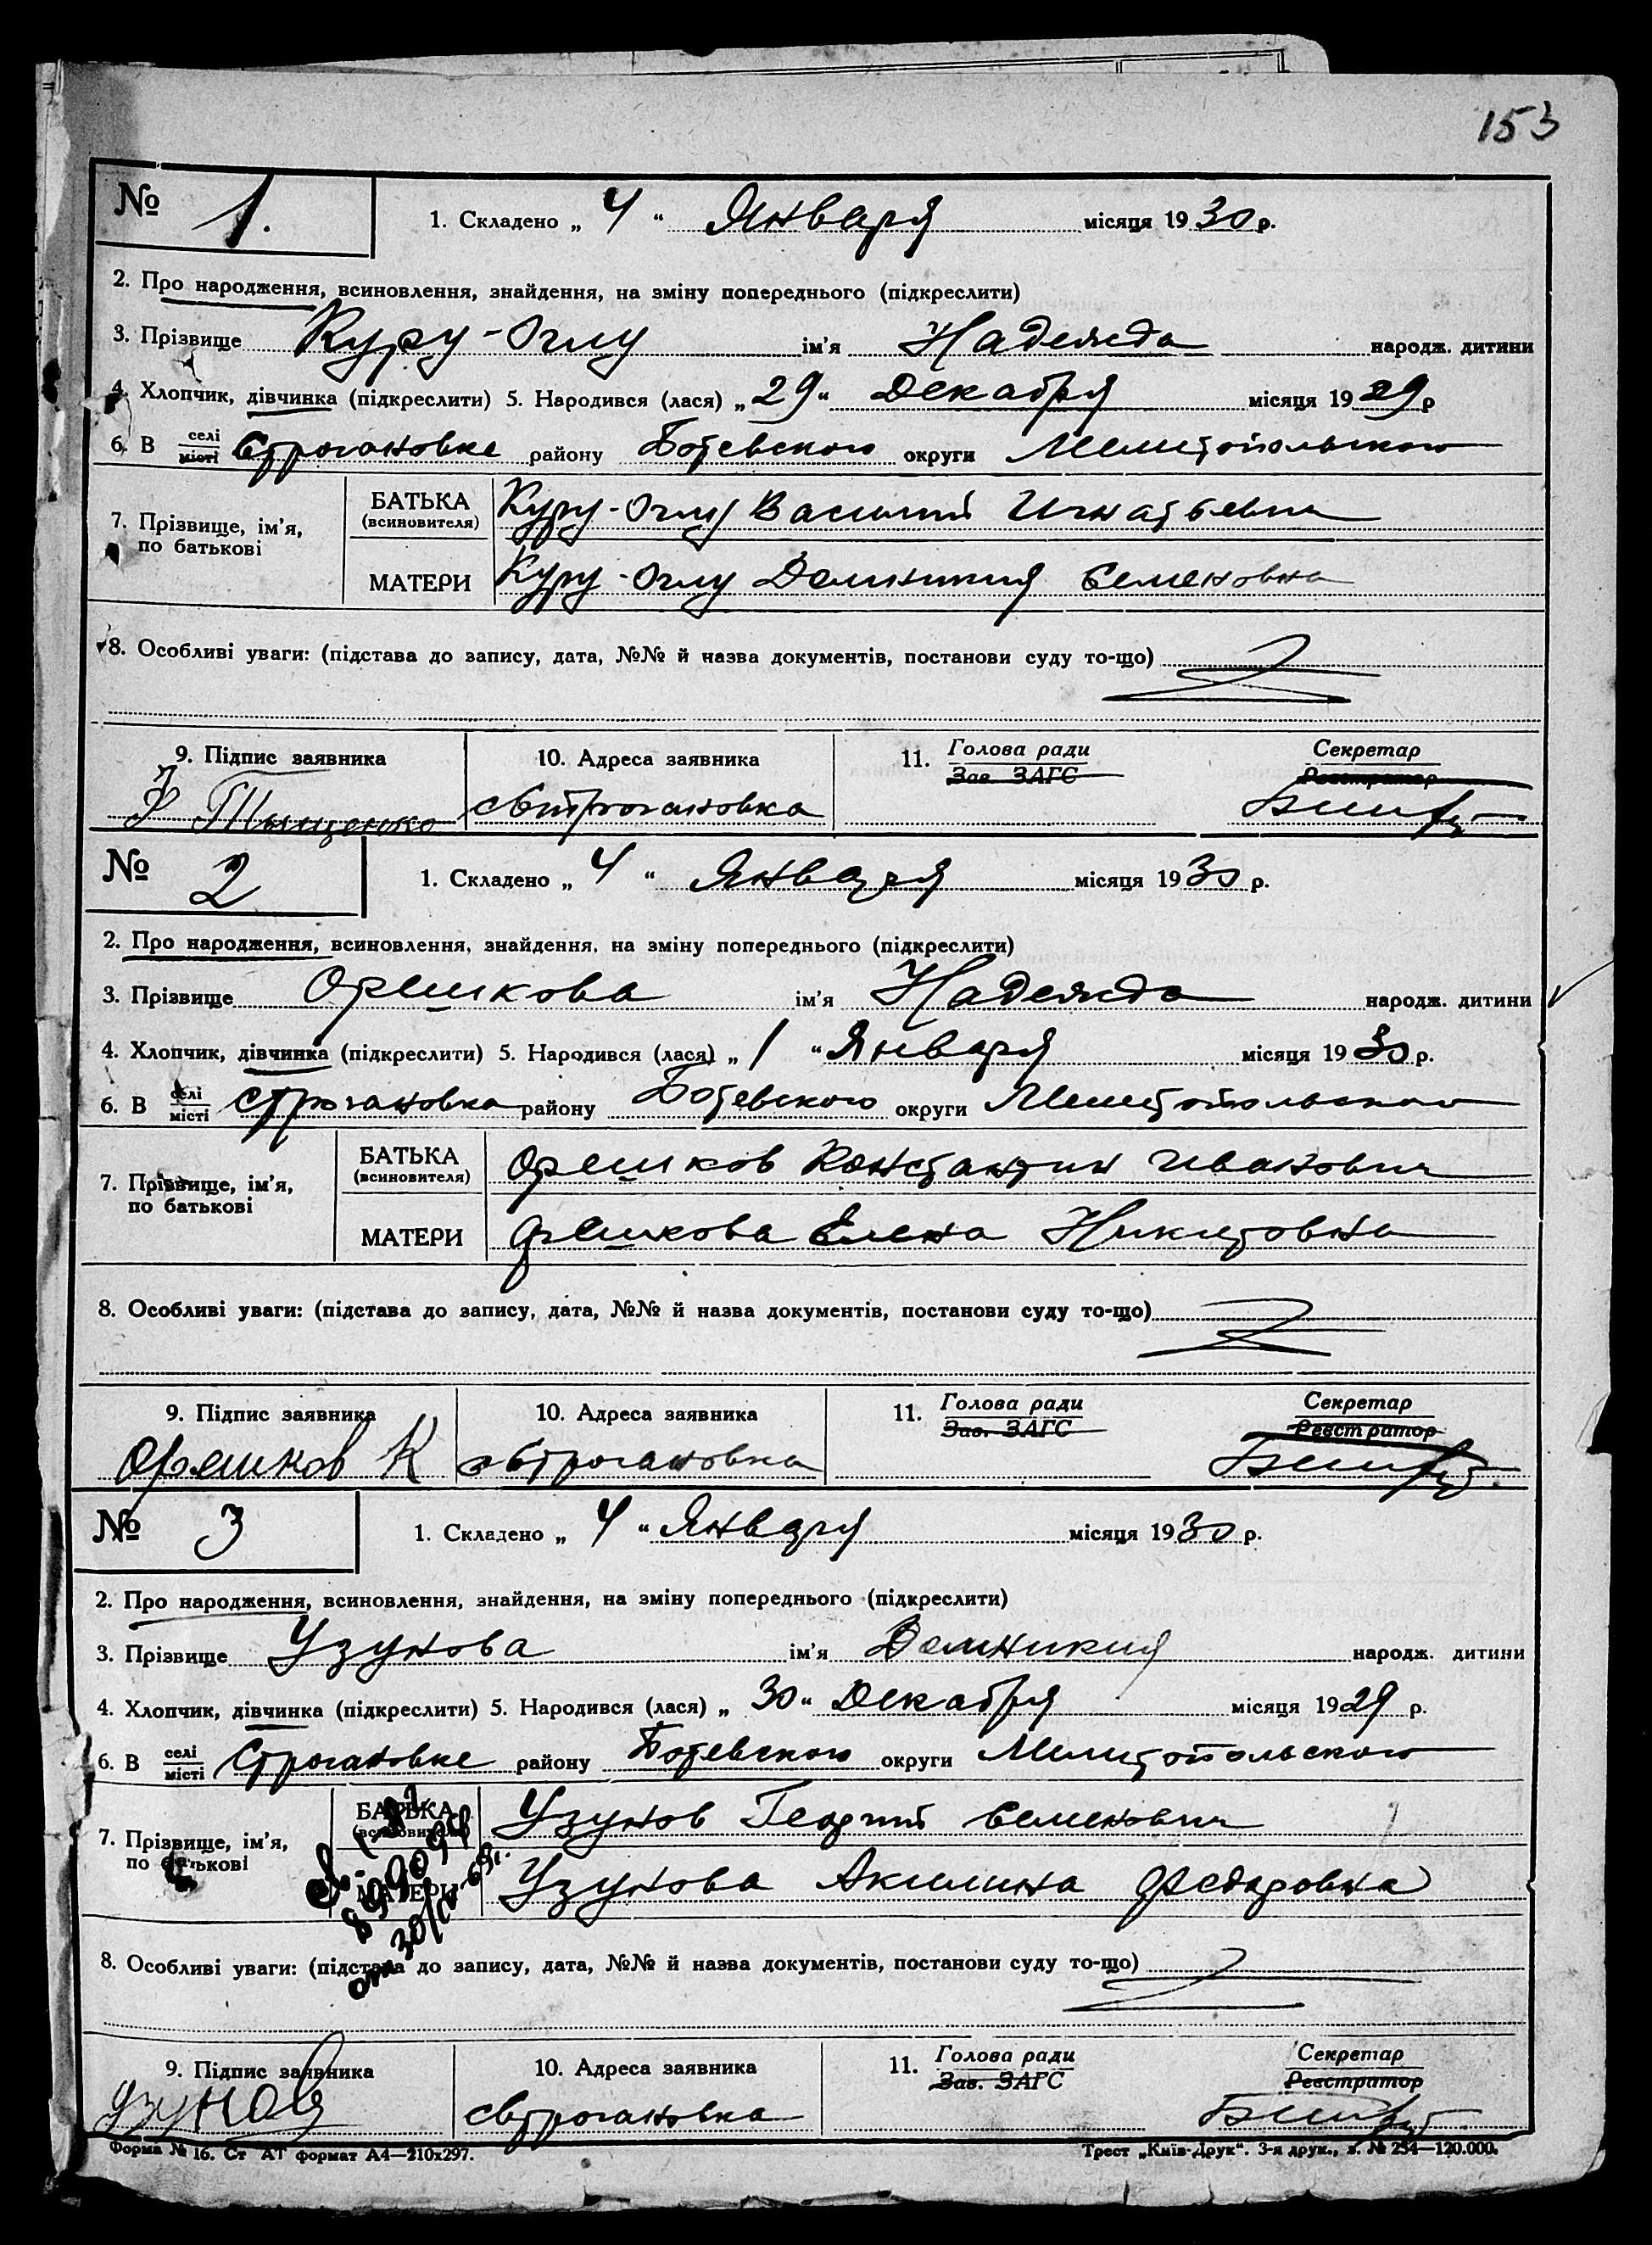 153
№ 1. 1. Складено „ 4 “ Января місяця 1930 р.
2. Про народження, всиновлення, знайдення, на зміну попереднього (підкреслити)
3. Прізвище Куру-Оглу ім'я Надежда народж. дитини
4. Хлопчик, дівчинка (підкреслити) 5. Народився (лася) „ 29 “ Декабря місяця 1929 р
6. В селі місті Строгановке району Ботевского округи Мелитопольского
7. Прізвище, ім'я, по батькові
БАТЬКА (всиновителя) Куру-Оглу Василий Игнатьевич
МАТЕРИ Куру-Оглу Домникия Семеновна
8. Особливі уваги: (підстава до запису, дата, №№ й назва документів, постанови суду то-що)
9. Підпис заявника 10. Адреса заявника 11. Голова ради Зав. ЗАГС Секретар Реєстратор
Тыщенко с Строгановка
№ 2 1. Складено „ 4 “ Января місяця 1930 р.
2. Про народження, всиновлення, знайдення, на зміну попереднього (підкреслити)
3. Прізвище Орешкова ім'я Надежда народж. дитини
4. Хлопчик, дівчинка (підкреслити) 5. Народився (лася) „ 1 “ Января місяця 1930 р.
6. В селі місті Строгановка району Ботевского округи Мелитопольского
7. Прізвище, ім'я, по батькові
БАТЬКА (всиновителя) Орешков Константин Иванович
МАТЕРИ Орешкова Елена Никитовна
8. Особливі уваги: (підстава до запису, дата, №№ й назва документів, постанови суду то-що)
9. Підпис заявника 10. Адреса заявника 11. Голова ради Зав. ЗАГС Секретар Реєстратор
Орешков К с Строгановка
№ 3 1. Складено „ 4 “ Января місяця 1930 р.
2. Про народження, всиновлення, знайдення, на зміну попереднього (підкреслити)
3. Прізвище Узунова ім'я Домникия народж. дитини
4. Хлопчик, дівчинка (підкреслити) 5. Народився (лася) „ 30 “ Декабря місяця 1929 р.
6. В селі місті Строгановке району Ботевского округи Мелитопольского
7. Прізвище, ім'я, по батькові
БАТЬКА (всиновителя) Узунов Георгий Семенович
МАТЕРИ Узунова Акилина Федоровна
8. Особливі уваги: (підстава до запису, дата, №№ й назва документів, постанови суду то-що)
9. Підпис заявника 10. Адреса заявника 11. Голова ради Зав. ЗАГС Секретар Реєстратор
Узунов с Строгановка
Форма № 16. Ст АТ формат А4—210х297. Трест „Київ-Друк“. 3-я друк., з. № 254—120.000.